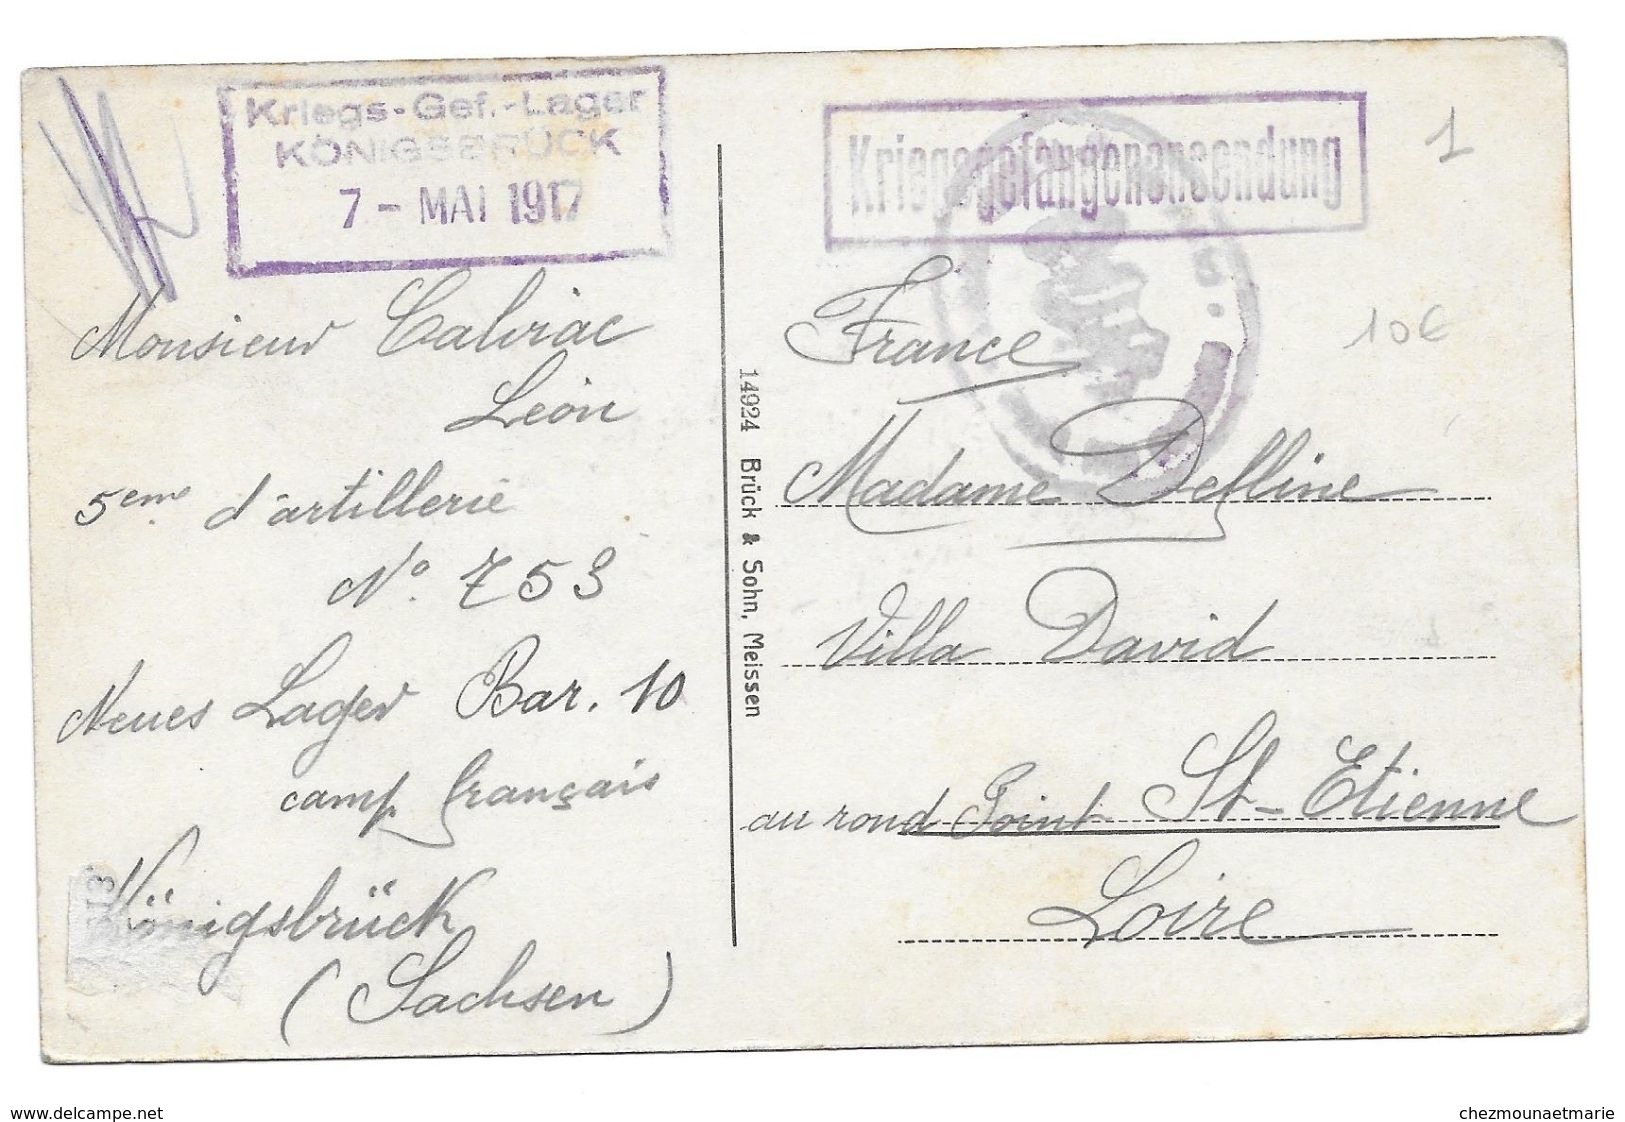 Kriegs-Gef.-Lager
KÖNIGSBRÜCK
7 - MAI 1917
Monsieur Calviac
Léon
5eme d'artillerie
No. 753
Neues Lager Bar. 10
camp français
Königsbrück
(Sachsen)
14924 Brück & Sohn, Meissen
Kriegsgefangenensendung
1
10€
France
Madame Delline
Villa David
au rond Point St-Etienne
Loire
www.delcampe.net
chezmounaetmarie